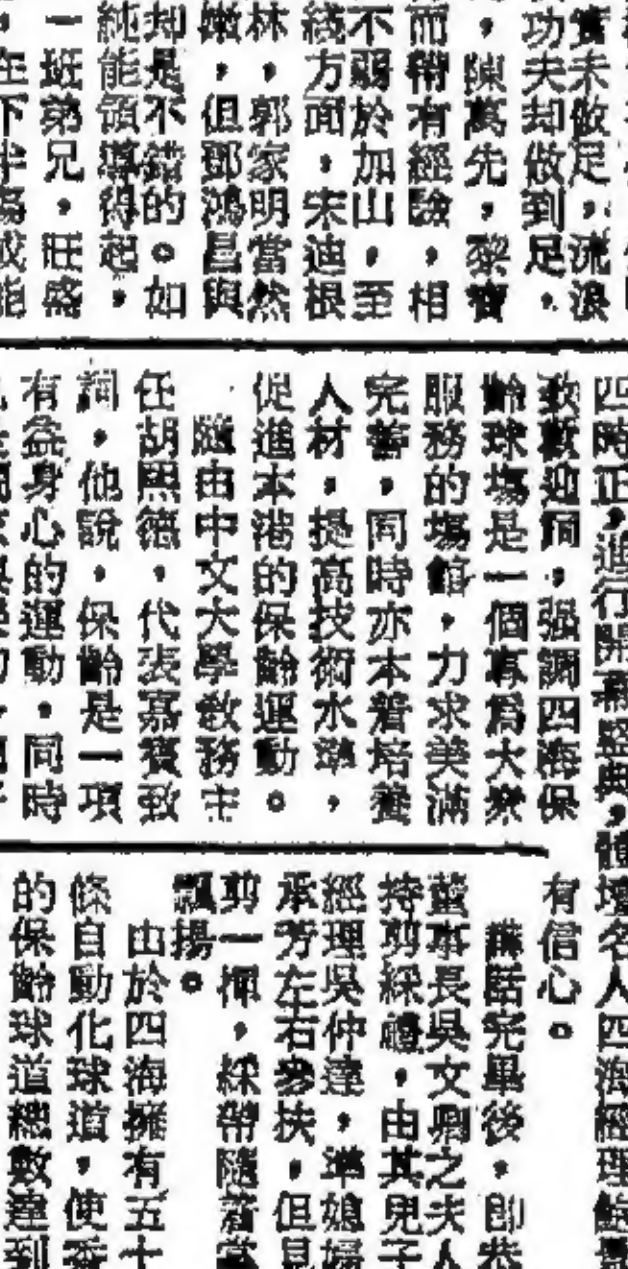 實未做足，流浪
功夫却做到足。
，陳萬先，黎寶
而帶有經驗，相
不弱於加山，至
綫方面，宋迪根
林，郭家明當然
嫩，但鄧鴻昌與
却是不錯的。如
純能領導得起，
一班弟兄，旺盛
，在下半場或能
四時正，進行開幕盛典，體壇名人四海經理
致歡迎詞，強調四海保
齡球場是一個專為大衆
服務的場館，力求美滿
完善，同時亦本着培養
人材，提高技術水準，
促進本港的保齡運動。
隨由中文大學教務主
任胡熙德，代表嘉賓致
詞，他說，保齡是一項
有益身心的運動。同時
有信心。
講話完畢後，即恭
董事長吳文剛之夫人
持剪綵禮，由其兒子
經理吳仲達，準媳婦
承芳左右參扶，但見
剪一揮，綵帶隨着
飄揚。
由於四海擁有五十
條自動化球道，使香
的保齡球道總數達到